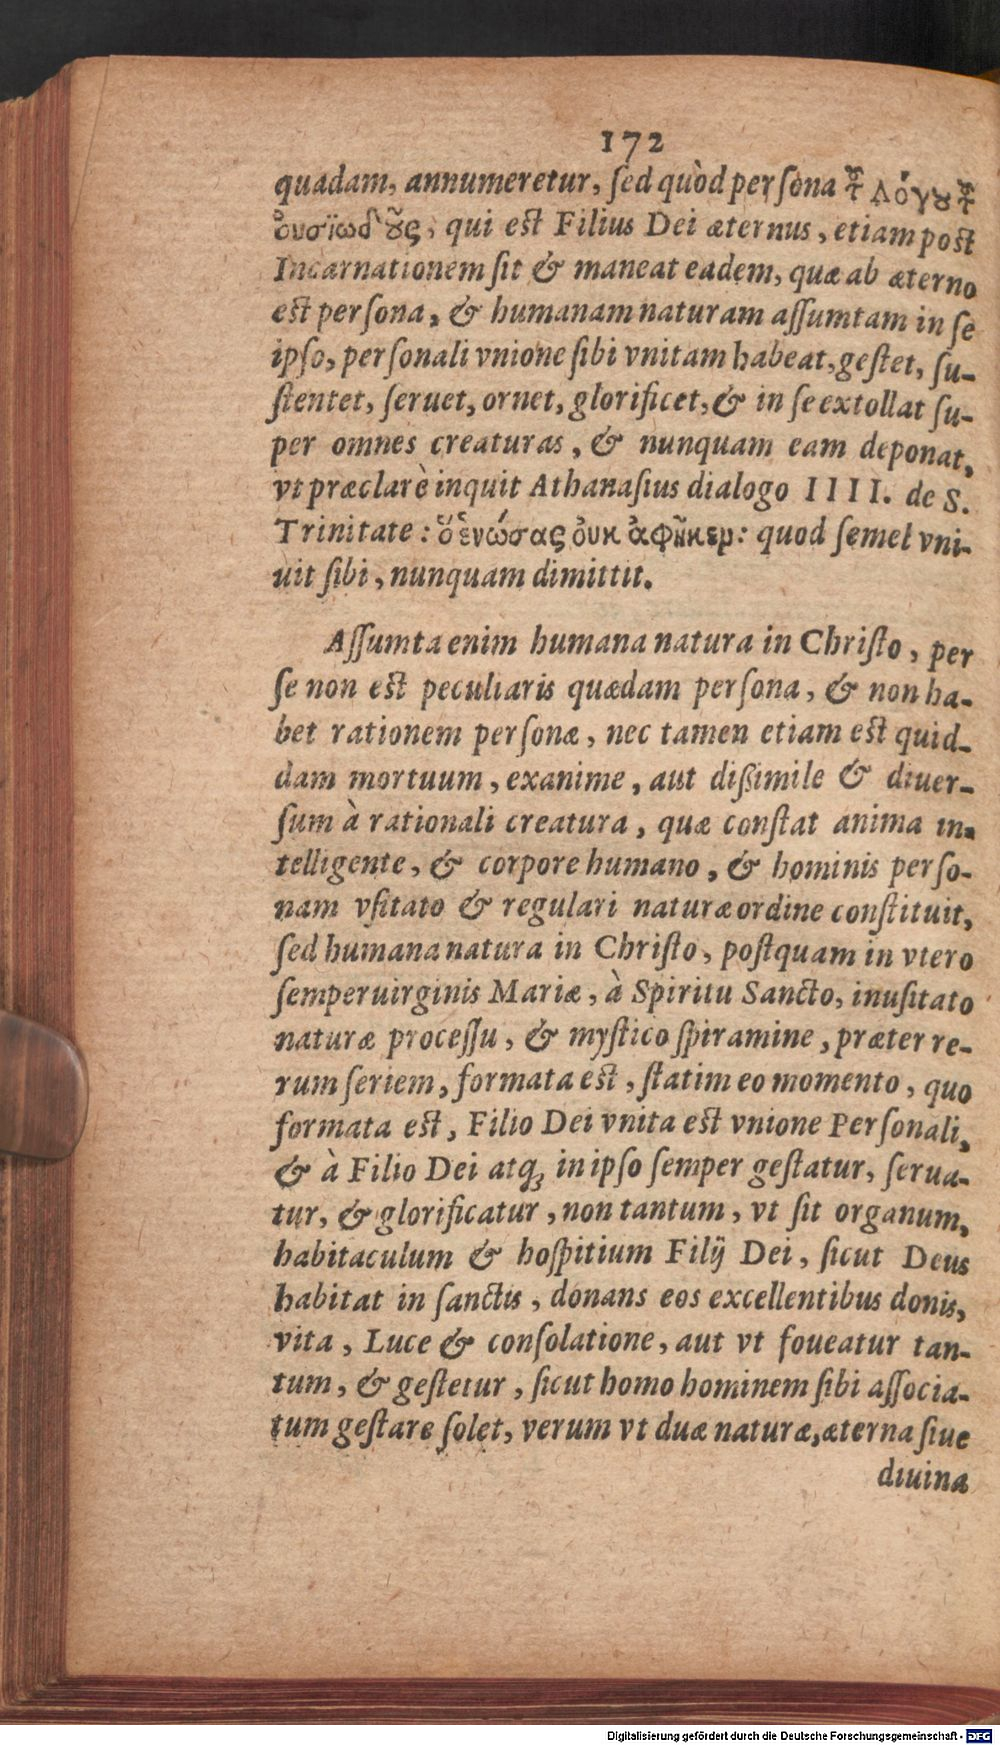 172
quadam, annumeretur, ſed quòd perſona τ̃ Λόγȣ τ̃
ȯυσϊωδȣ̃ς, qui est Filius Dei æternus, etiam post
Incarnationem ſit & maneat eadem, quæ ab æterno
est perſona, & humanam naturam aſſumtam in ſe
ipſo, perſonali vnione ſibi vnitam habeat, geſtet, ſu-
ſtentet, ſeruet, ornet, glorificet, & in ſe extollat ſu-
per omnes creaturas, & nunquam eam deponat,
vt præclarè inquit Athanaſius dialogo IIII. de S.
Trinitate: ὅ ἑνώσας ὀυκ ἀφῆκεν: quod ſemel vni-
uit ſibi, nunquam dimittit.
Aſſumta enim humana natura in Chriſto, per
ſe non est peculiaris quædam perſona, & non ha-
bet rationem perſonæ, nec tamen etiam est quid-
dam mortuum, exanime, aut dißimile & diuer-
ſum à rationali creatura, quæ conſtat anima in-
telligente, & corpore humano, & hominis perſo-
nam vſitato & regulari naturæ ordine conſtituit,
ſed humana natura in Chriſto, poſtquam in vtero
ſemperuirginis Mariæ, à Spiritu Sancto, inuſitato
naturæ proceſſu, & myſtico ſpiramine, præter re-
rum ſeriem, formata est, ſtatim eo momento, quo
formata est, Filio Dei vnita est vnione Perſonali,
& à Filio Dei atq; in ipſo ſemper geſtatur, ſerua-
tur, & glorificatur, non tantum, vt ſit organum,
habitaculum & hoſpitium Filij Dei, ſicut Deus
habitat in ſanctis, donans eos excellentibus donis,
vita, Luce & conſolatione, aut vt foueatur tan-
tum, & geſtetur, ſicut homo hominem ſibi aſſocia-
tum geſtare ſolet, verum vt duæ naturæ, æterna ſiue
diuina
Digitalisierung gefördert durch die Deutsche Forschungsgemeinschaft - DFG